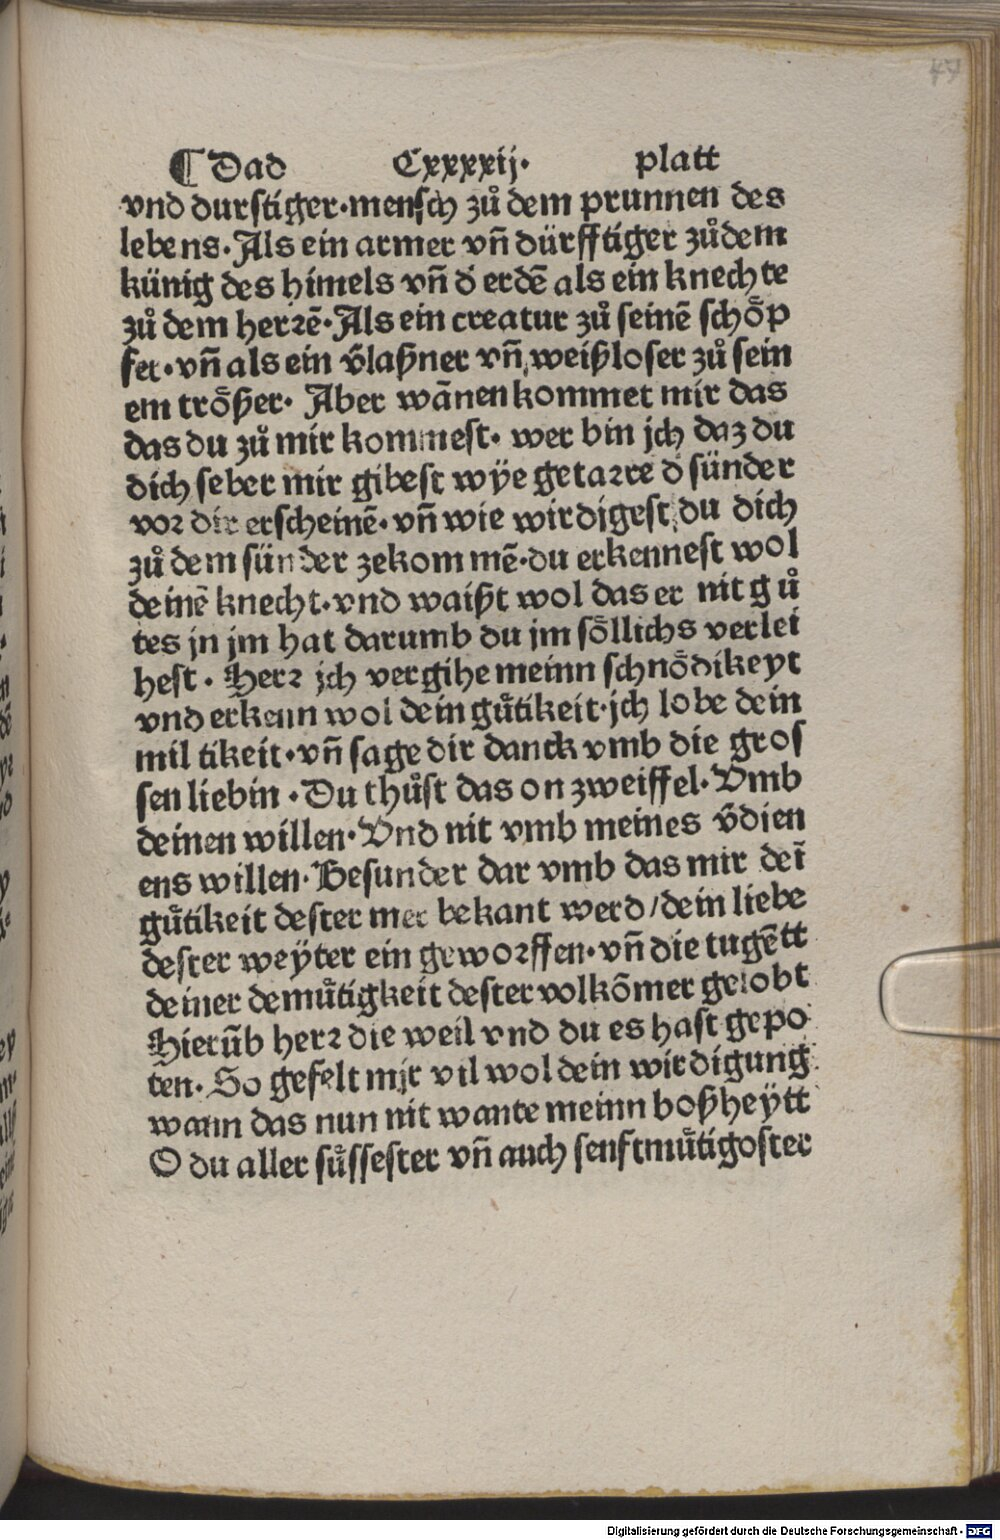 47
¶ Dad Cxxxxij· platt
vnd durstiger·mensch zů dem prunnen des
lebens·Als ein armer vñ dürfftiger zůdem
künig des himels vñ d̕ erdē als ein knechte
zů dem herꝛē·Als ein creatur zů seinē schöp
fer·vñ als ein v̄laßner vñ weißloser zů sein
em trößer· Aber wānen kommet mir das
das du zů mir kommest· wer bin jch daz du
dich seber mir gibest wÿe getaꝛre d̕ sünder
voꝛ dir erscheinē·vñ wie wirdigest du dich
zů dem sünder zekommē·du erkennest wol
deinē knecht·vnd waißt wol das er nit gů
tes jn jm hat darumb du jm söllichs verlei
hest· Herꝛ jch vergihe meinn schnödikeyt
vnd erkenn wol dein gůtikeit·jch lobe dein
miltikeit·vñ sage dir danck vmb die gros
sen liebin·Du thůst das on zweiffel·Vmb
deinen willen·Vnd nit vmb meines v̄dien
ens willen·Besunder dar vmb das mir deī
gůtikeit dester mer bekant werd/dein liebe
dester weÿter ein gewoꝛffen·vñ die tugētt
deiner demůtigkeit dester volkōmer gelobt
Hierūb herꝛ die weil vnd du es hast gepo
ten·So gefelt mir vil wol dein wirdigung
wann das nun nit wante meinn boßheÿtt
O du aller sůssester vñ auch senftmůtigoster
Digitalisierung gefördert durch die Deutsche Forschungsgemeinschaft - DFG